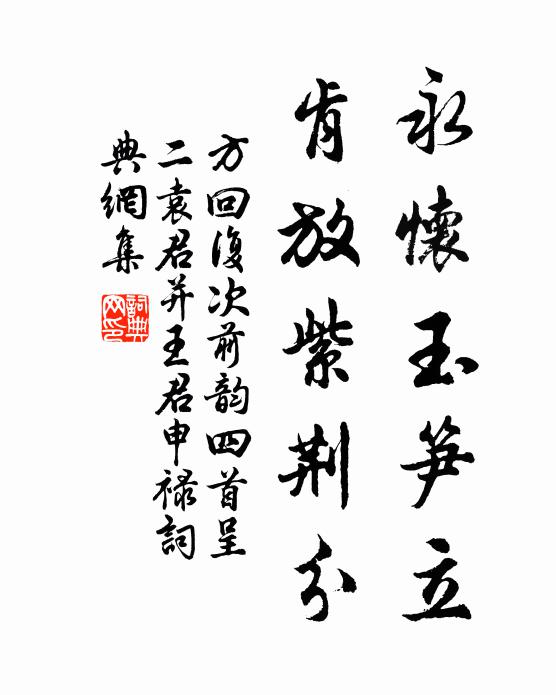 永懷玉笋立
肯放紫荆分
方回復次前韵四首呈
二袁君并王君申禄詞
典網集
詞典网印